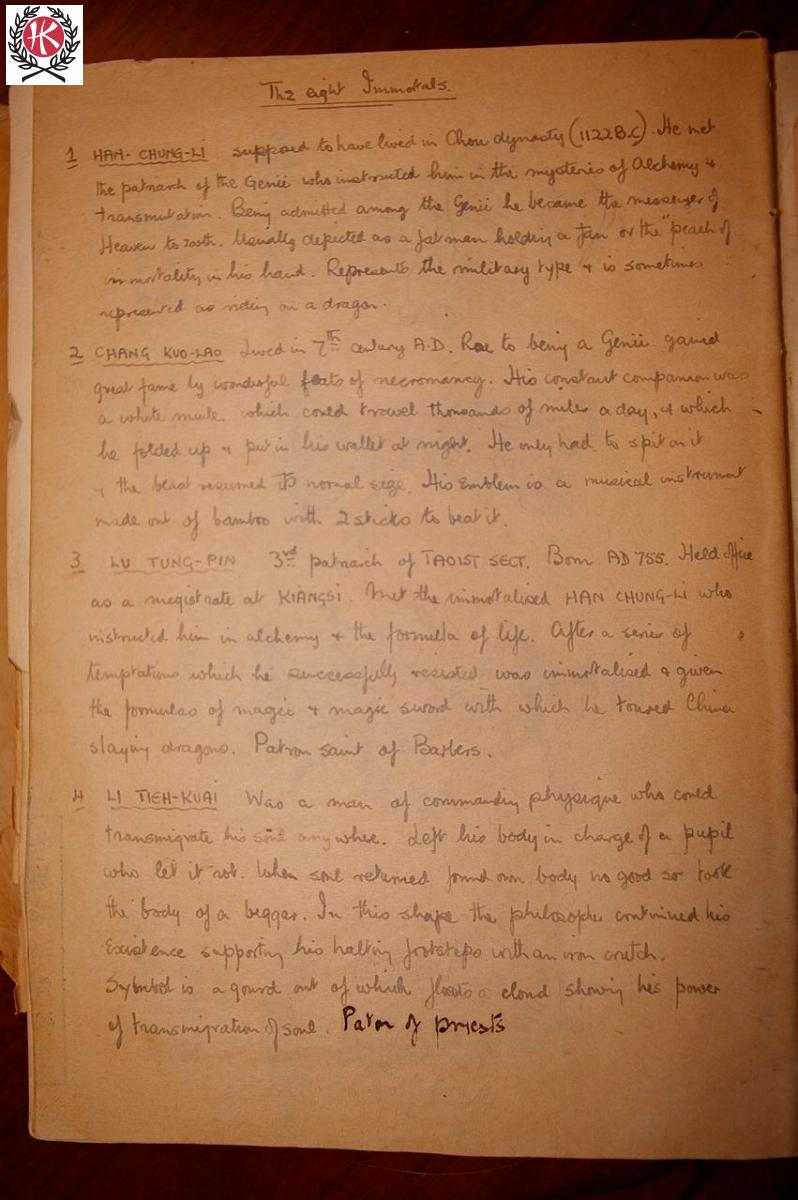 HK
The eight Immortals.
1 HAN-CHUNG-LI supposed to have lived in Chou dynasty (1122 B.C.). He met
the patriarch of the Genii who instructed him in the mysteries of Alchemy +
transmutation. Being admitted among the Genii he became the messenger of
Heaven to earth. Usually depicted as a fat man holding a fan or the "peach of
immortality in his hand. Represents the military type + is sometimes
represented as riding on a dragon.
2 CHANG KUO-LAO Lived in 7th century A.D. Rose to being a Genii. gained
great fame by wonderful feats of necromancy. His constant companion was
a white mule. which could travel thousands of miles a day, + which
he folded up + put in his wallet at night. He only had to spit on it
+ the beast resumed its normal size. His Emblem is a musical instrument
made out of bamboo with 2 sticks to beat it.
3 LU TUNG-PIN 3rd patriarch of TAOIST SECT. Born AD 755. Held office
as a magistrate at KIANGSI. Met the immortalised HAN CHUNG-LI who
instructed him in alchemy + the formula of life. After a series of
temptations which he successfully resisted was immortalised + given
the formulas of magic + magic sword with which he toured China
slaying dragons. Patron saint of Barbers.
4 LI TIEH-KUAI Was a man of commanding physique who could
transmigrate his soul anywhere. Left his body in charge of a pupil
who let it rot. When soul returned found own body no good so took
the body of a beggar. In this shape the philosopher continued his
Existence supporting his halting footsteps with an iron crutch.
Symbol is a gourd out of which floats a cloud showing his power
of transmigration of soul. Patron of priests